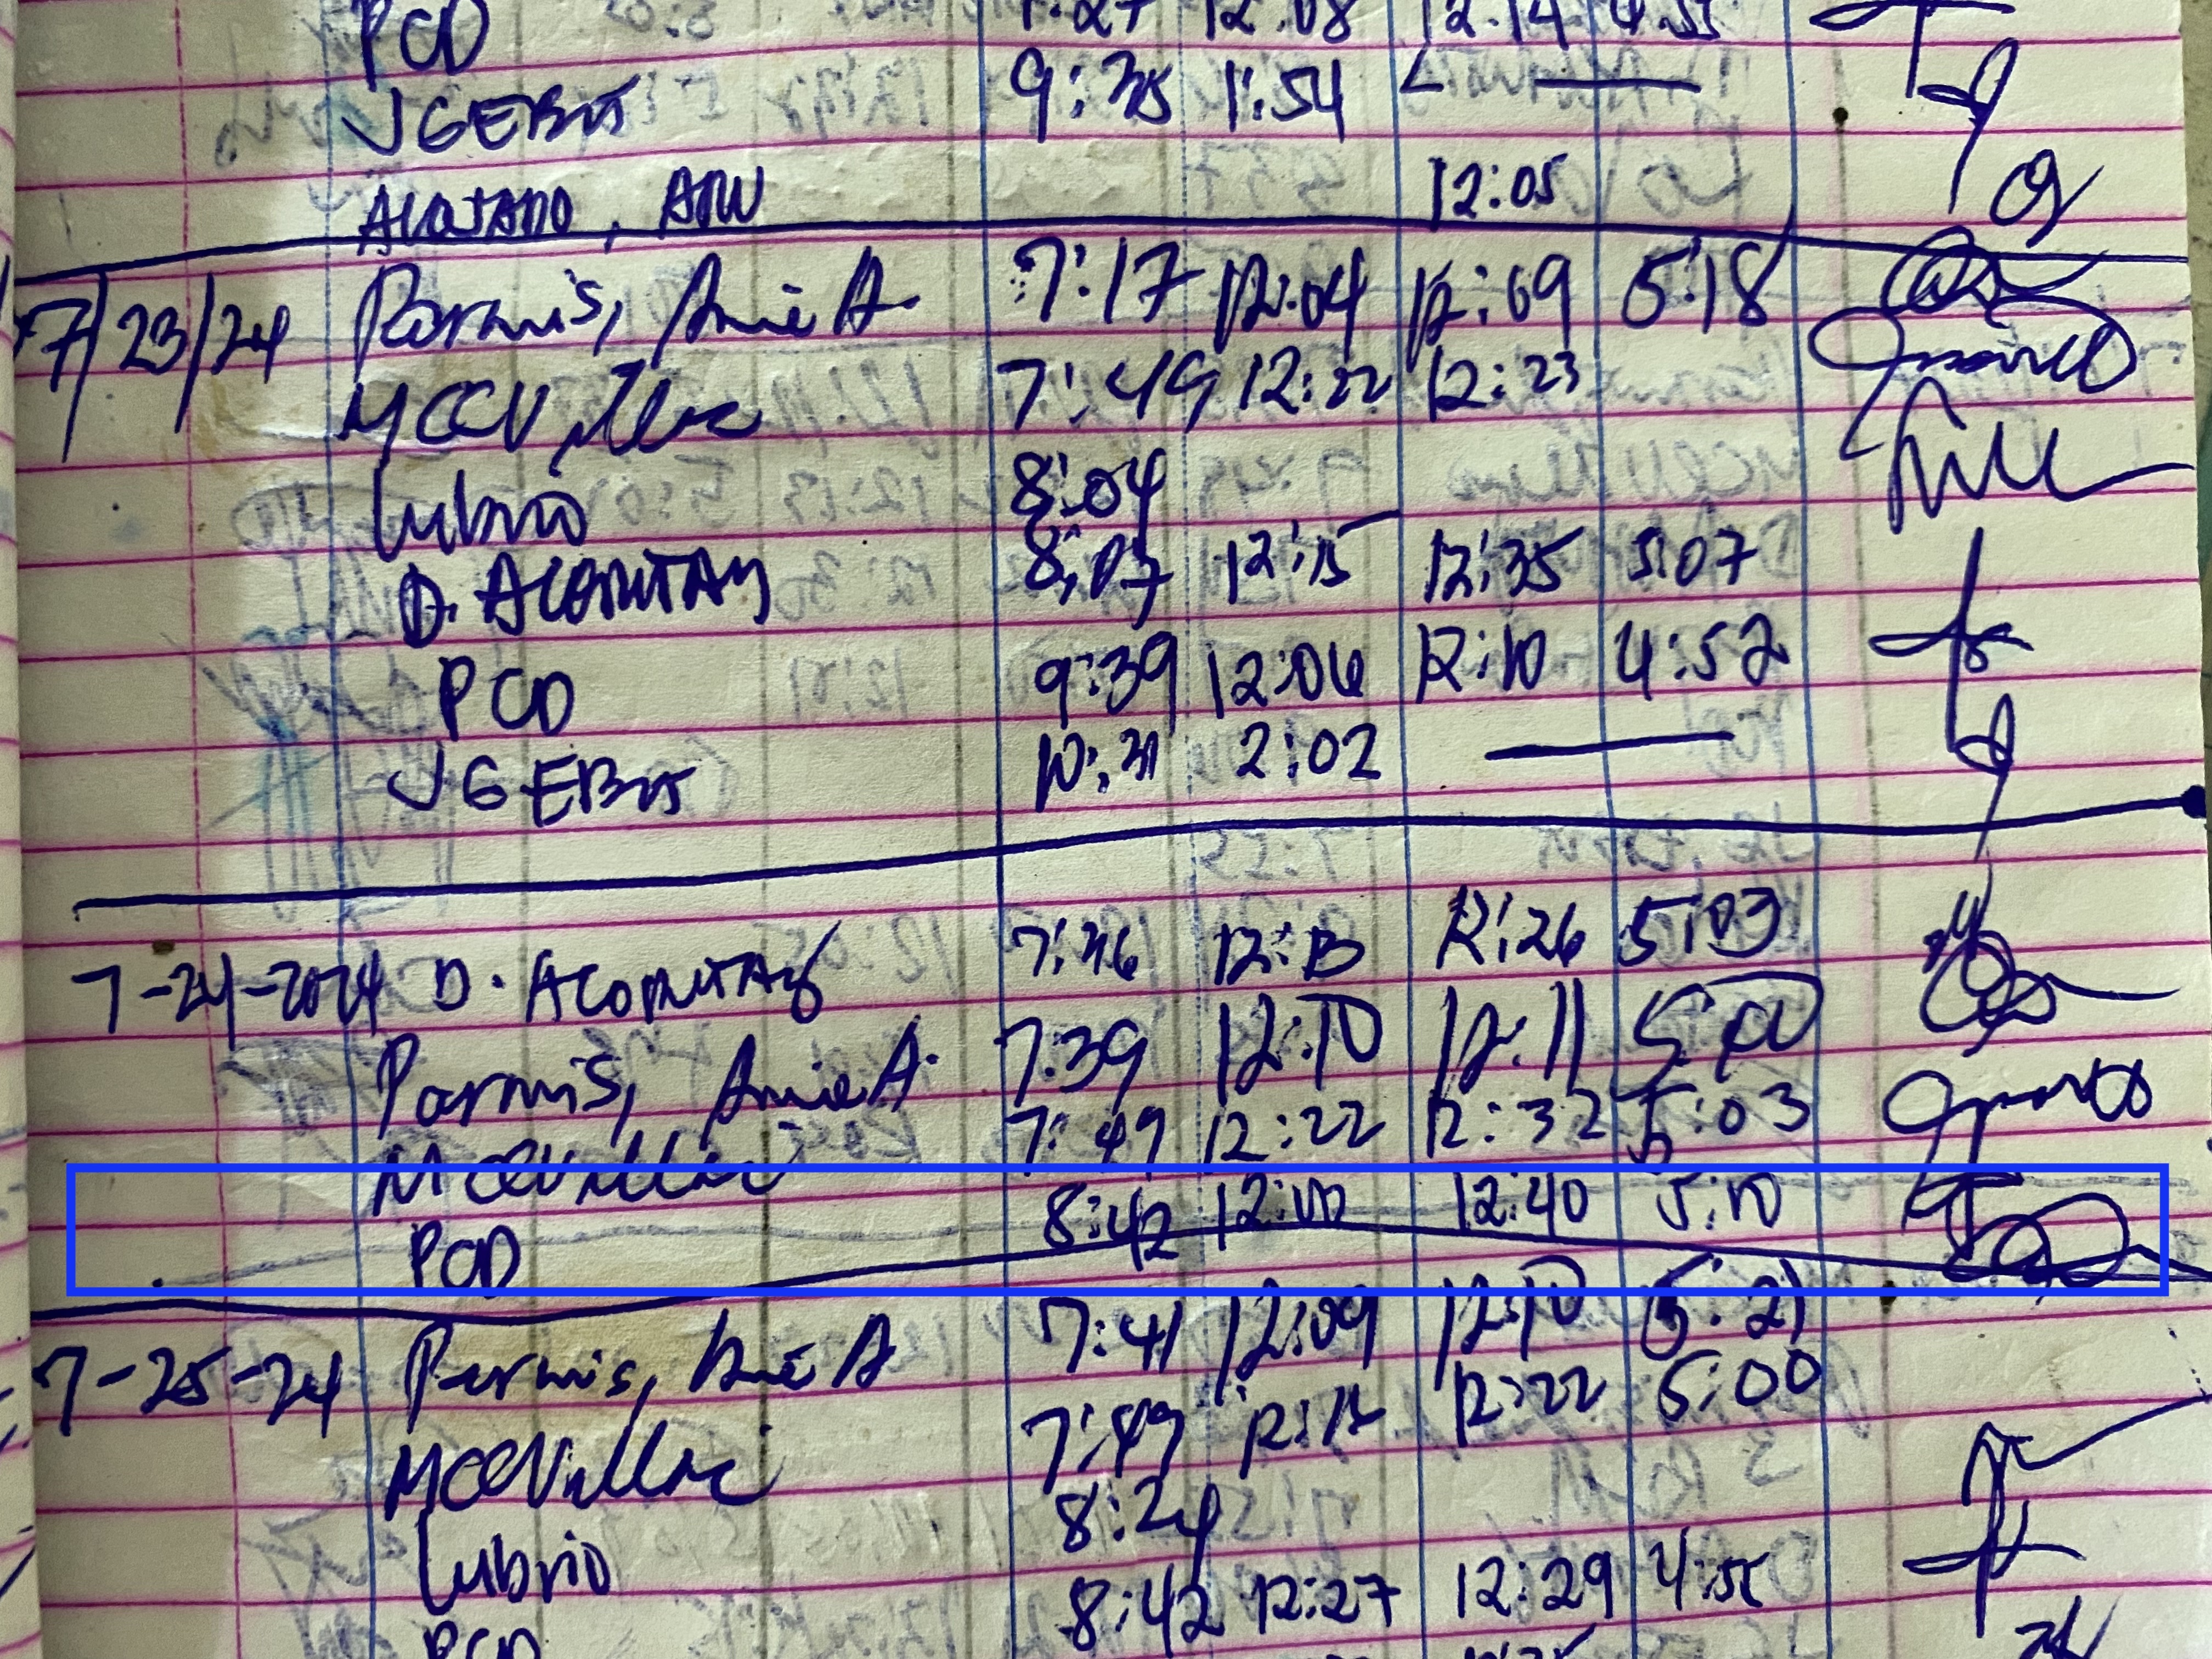 PCD 7:27 12:08 12:14 4:55
JGEBA 9:35 1:54
12:05
7/23/24 Parmis, Amie A. 7:17 12:04 12:09 5:18
MCCVillac 7:49 12:22 12:23
Lubrio 8:04
D. ACOMITAY 8:07 12:15 12:35 5:07
PCD 9:39 12:06 12:10 4:52
JGEBA 10:31 2:02
7-24-2024 D. ACOMITAY 7:46 12:13 12:26 5:03
Parmis, Amie A. 7:39 12:10 12:11
MCCVillac 7:49 12:22 12:32 5:03
PCD 8:42 12:00 12:40 5:10
7-25-24 Parmis, Amie A 7:41 12:09 12:10 5:21
MCCVillac 7:49 12:12 12:22 5:00
Lubrio 8:24
PCD 8:42 12:27 12:29 4:55